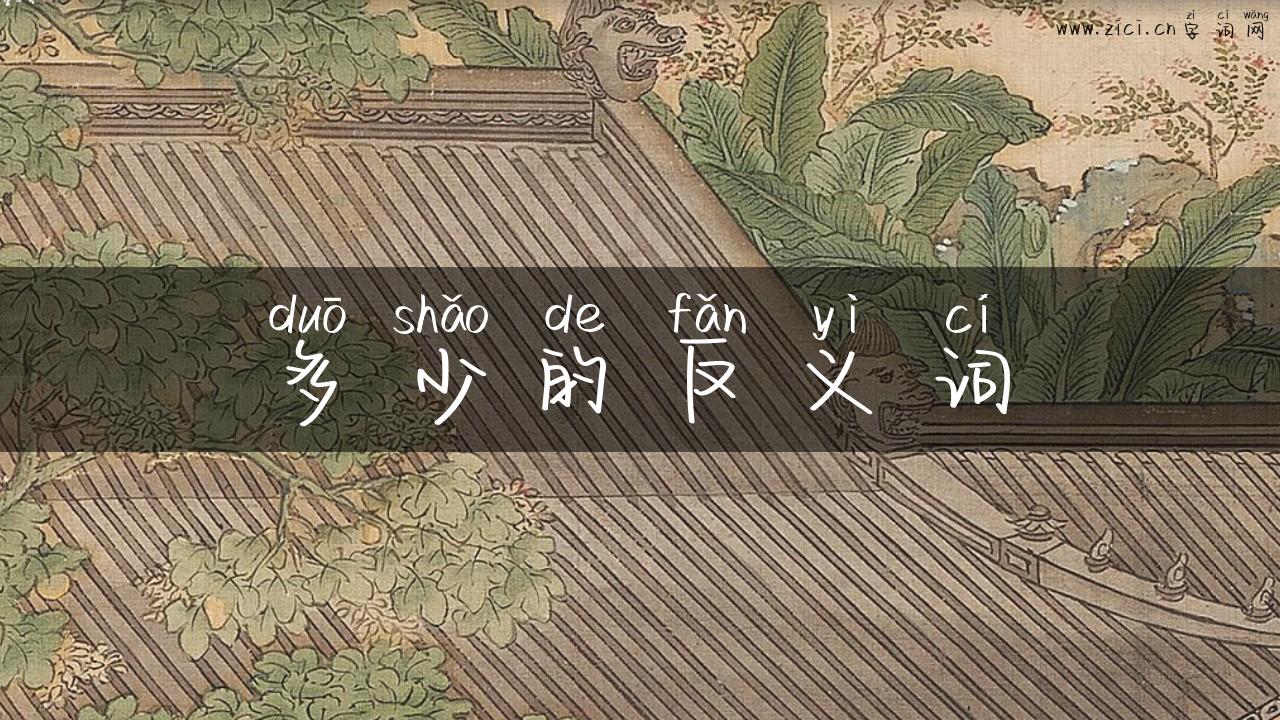 zì cí wǎng
www.zici.cn 字词网
duō shǎo de fǎn yì cí
多少的反义词